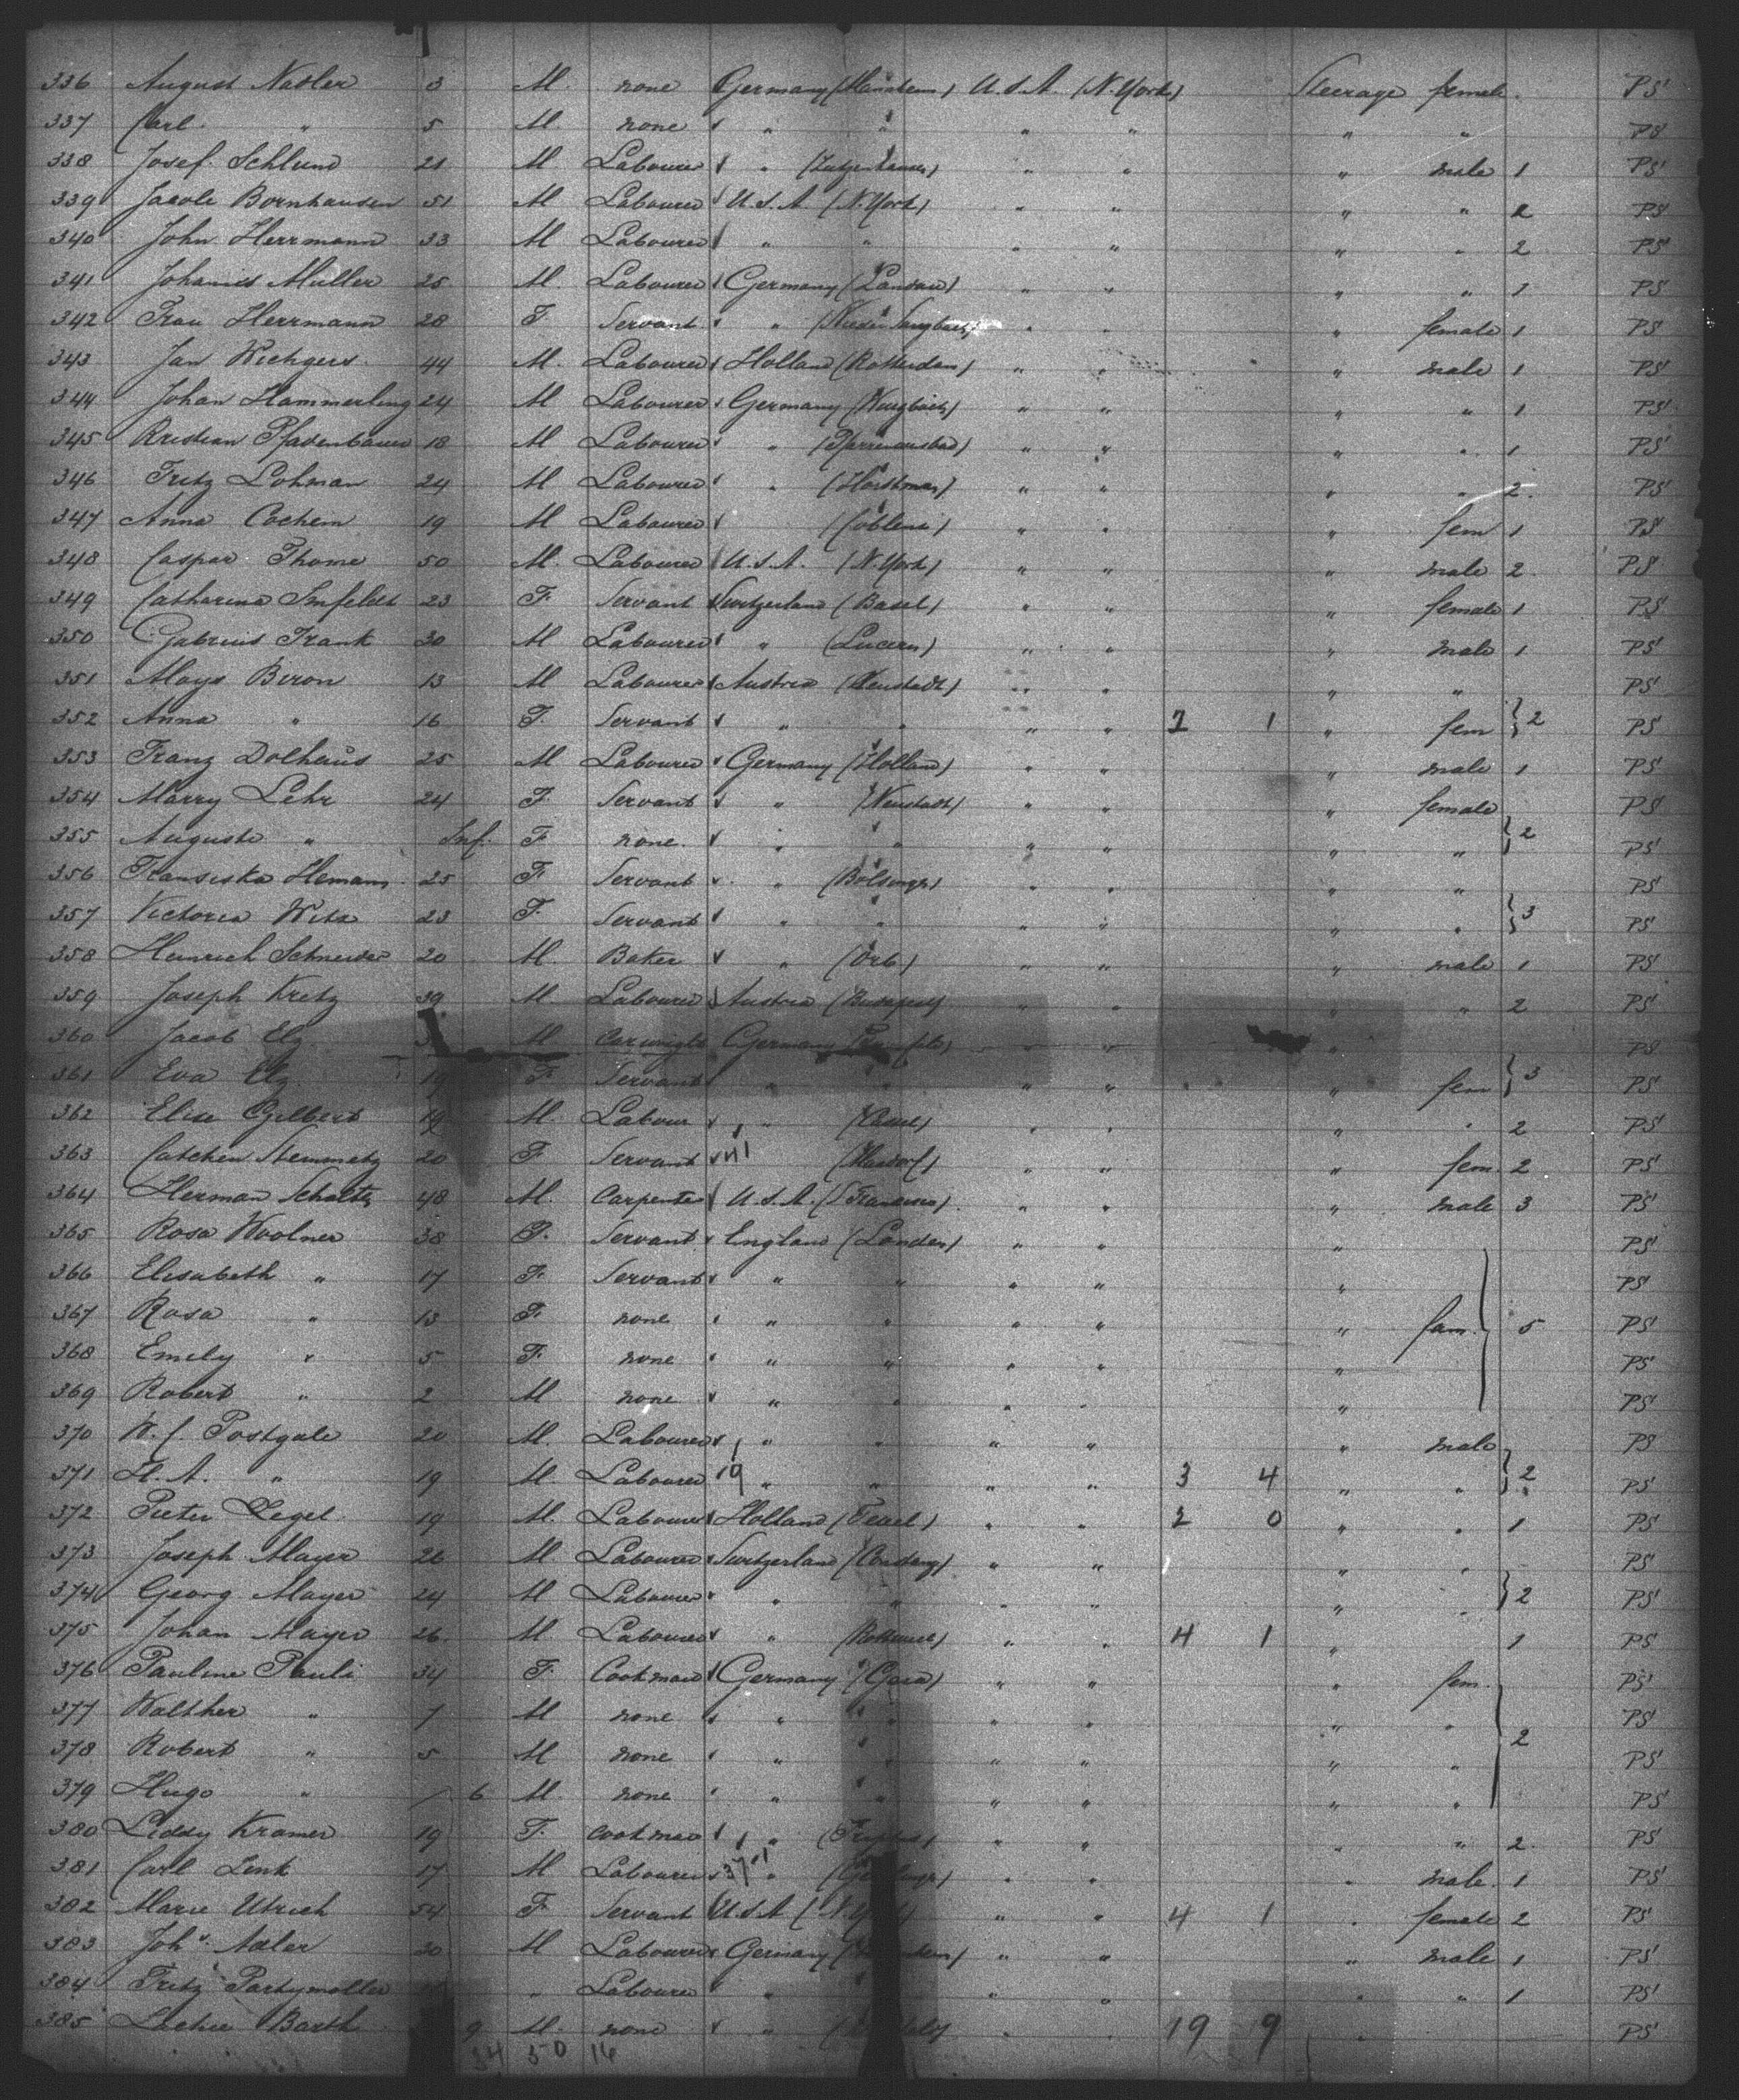 336 August Nadler 3 M. none Germany (Manheim) U.S.A. (N. York) Steerage female PS
337 Carl " 5 M. none " " " " " " PS
338 Josef Schlund 21 M Labourer " " " " male 1 PS
339 Jacob Bornhauser 51 M Labourer U.S.A. (N. York) " " " " 2 PS
340 John Herrmann 33 M Labourer " " " " " " 2 PS
341 Johannes Muller 25 M. Labourer Germany (Landau) " " " " 1 PS
342 Frau Herrmann 28 F Servant " " " " female 1 PS
343 Jan Wichgers 44 M. Labourer Holland (Rotterdam) " " " male 1 PS
344 Johan Hammerling 24 M Labourer Germany " " " " 1 PS
345 Kristian Pfadenbauer 18 M Labourer " " " " " 1 PS
346 Fritz Lohman 24 M Labourer " (Horstmar) " " " " 2 PS
347 Anna Cochem 19 M Labourer (Coblenz) " " " fem 1 PS
348 Caspar Thome 50 M. Labourer U.S.A. (N. York) " " " male 2 PS
349 Catharina 23 F Servant Switzerland (Basel) " " " female 1 PS
350 Frank 30 M Labourer " (Lucern) " " " male 1 PS
351 Aloys Biron 13 M Labourer Austria (Neustadt) " " " " PS
352 Anna " 16 F. Servant " " " " 1 " fem } 2 PS
353 Franz Dolhaus 25 M Labourer Germany (Holland) " " " male 1 PS
354 Marry Lehr 24 F Servant " (Neustadt) " " " female PS
355 Auguste " Inf. F none. " " " " " " } 2 PS
356 Fransiska Hemann 25 F Servant " " " " " PS
357 Victoria Witz 23 F. Servant " " " " " " } 3 PS
358 Heinrich Schneider 20 M. Baker " (Orb) " " " male 1 PS
359 Joseph Kretz 39 M Labourer Austria " " " " 2 PS
360 Jacob Elz M Germany " " " PS
361 Eva Elz 19 F Servant " " " " " fem } 3 PS
362 Elise Gilbert 19 M. Labour " (Cassel) " " " " 2 PS
363 Catchen Stemmetz 20 F Servant " " " fem. 2 PS
364 Herman Scholte 48 M. Carpenter U.S.A. (S Francisco) " " " male 3 PS
365 Rosa Woolner 38 F. Servant England (London) " " " PS
366 Elisabeth " 17 F. Servant " " " " " PS
367 Rosa " 13 F. none " " " " " fam. } 5 PS
368 Emely " 5 F. none " " " " " PS
369 Robert " 2 M none " " " " " PS
370 W. C. Postgate 20 M. Labourer " " " " " male PS
371 H. A. " 19 M. Labourer 9 " " " " 3 4 " " } 2 PS
372 Pieter Legel 19 M. Labourer Holland (Texel) " " 2 0 " " 1 PS
373 Joseph Mayer 26 M. Labourer Switzerland " " " " PS
374 Georg Mayer 24 M Labourer " " " " " " } 2 PS
375 Johan Mayer 26 M. Labourer " " " 4 1 " 1 PS
376 Pauline Pauli 34 F. Germany (Gera) " " " fem. PS
377 Walther " 7 M none " " " " " " PS
378 Robert " 5 M none " " " " " " } 2 PS
379 Hugo " 6 M. none " " " " " " PS
380 Liddy Kramer 19 F. " " " " " 2 PS
381 Carl Link 17 M Labourer " " " " male 1 PS
382 Marie Utrich 54 F Servant U.S.A (N. York) " " 4 1 " female 2 PS
383 Joh. Adler 30 M Labourer Germany " " " male 1 PS
384 Fritz Partymoller " Labourer " " " " " 1 PS
385 Barth 9 M. none " " " 19 9 " PS
34 50 16